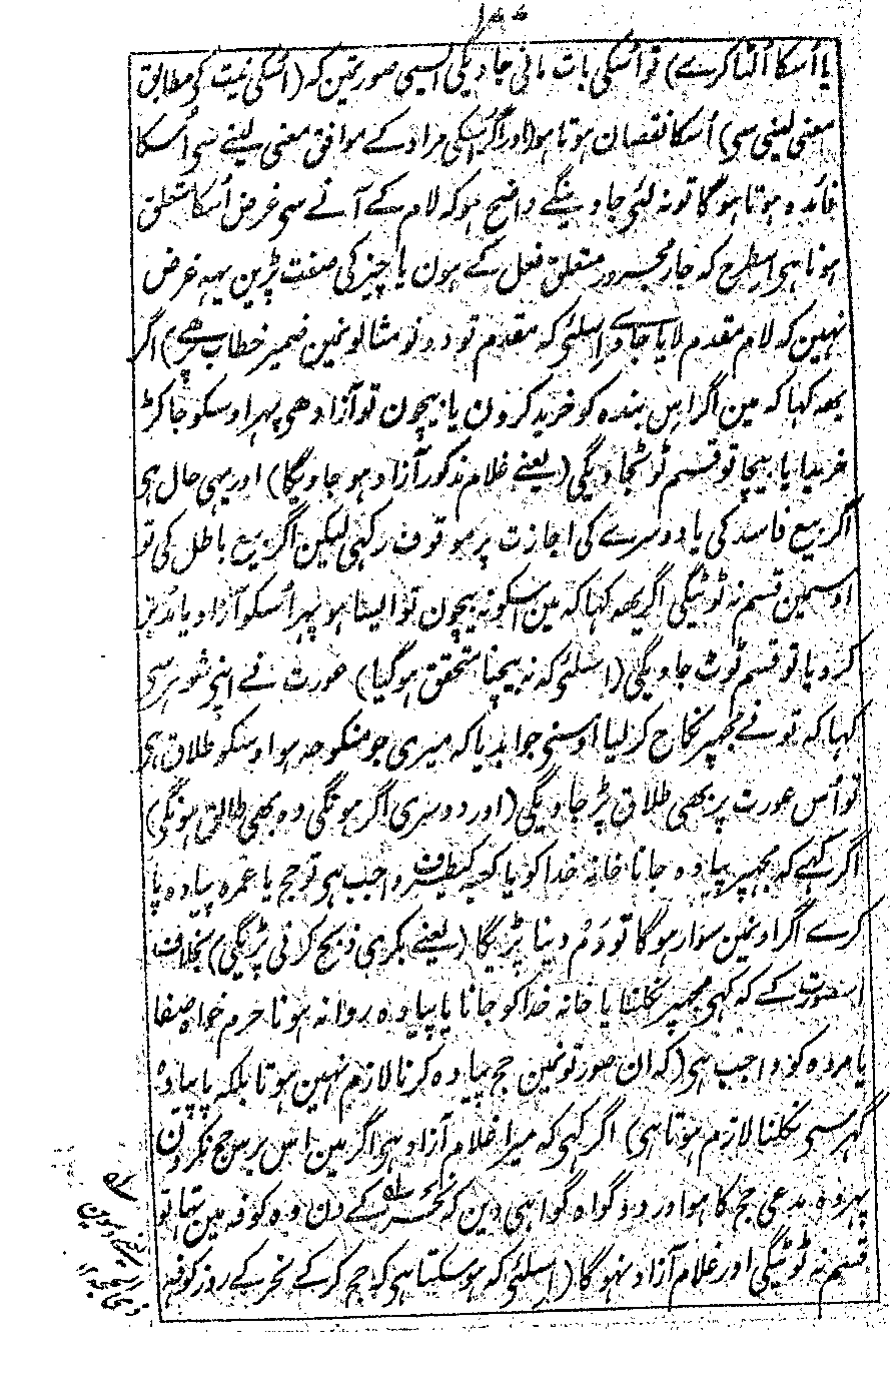 یا اُسکا اُلٹا کرے) تو اُسکی بات مانی جاویگی ایسی صورتمین کہ (اُسکی نیت کی مطابق
معنی لینی سی) اُسکا نقصان ہوتا ہو اور اگر اُسکی مراد کے موافق معنی لینے سی اُسکا
فائدہ ہوتا ہوگا تو نہ لئی جاوینگے واضح ہو کہ لام کے آنے سی غرض اُسکا متعلق
ہونا ہی اسطرح کہ جار مجرور متعلق فعل کے ہون یا چیز کی صفت پڑین یہہ غرض
نہین کہ لام مقدم لایا جاوے اسلئی کہ مقدم تو دونو مثالونمین ضمیر خطاب ہے) اگر
یہہ کہا کہ مین اگر اس بندہ کو خرید کرون یا بیچون تو آزاد ھی پہر اوسکو جاکڑ
خریدا یا بیچا تو قسم ٹوٹجاویگی (یعنے غلام مذکور آزاد ہو جاویگا) اور یہی حال ہی
اگر بیع فاسد کی یا دوسرے کی اجازت پر موقوف رکہی لیکن اگر بیع باطل کی تو
اوسمین قسم نہ ٹوٹیگی اگر یہہ کہا کہ مین اسکو نہ بیچون تو ایسا ہو پہر اُسکو آزاد یا مدبر
کر دیا تو قسم ٹوٹ جاویگی (اسلئی کہ نہ بیچنا متحقق ہوگیا) عورت نے اپنی شوہر سی
کہا کہ تونے مجہپر نکاح کر لیا اوسنی جوابدیا کہ میری جو منکوحہ ہو اوسکو طلاق ہی
تو اُس عورت پر بھی طلاق پڑ جاویگی (اور دوسری اگر ہونگی وہ بھی طالق ہونگی)
اگر کہے کہ مجہپر پیادہ جانا خانہ خدا کو یا کعبہ کیطرف واجب ہی تو حج یا عمرہ پیادہ پا
کرے اگر اونمین سوار ہوگا تو دَم دینا پڑیگا (یعنے بکری ذبح کرنی پڑیگی) بخلاف
اسصورت کے کہ کہی مجہپر نکلنا یا خانہ خدا کو جانا یا پیادہ روانہ ہونا حرم خواہ صفا
یا مروہ کو واجب ہی (کہ ان صورتونمین حج پیادہ کرنا لازم نہین ہوتا بلکہ پاپیادہ
گہر سی نکلنا لازم ہوتا ہی) اگر کہی کہ میرا غلام آزاد ہی اگر مین اس برس حج نکرون
پہر وہ مدعی حج کا ہو اور دو گواہ گواہی دین کہ نحر کے دن وہ کوفہ مین تہا تو
قسم نہ ٹوٹیگی اور غلام آزاد نہوگا (اسلئی کہ ہو سکتا ہی کہ حج کرکے نحر کے روز کوفہ